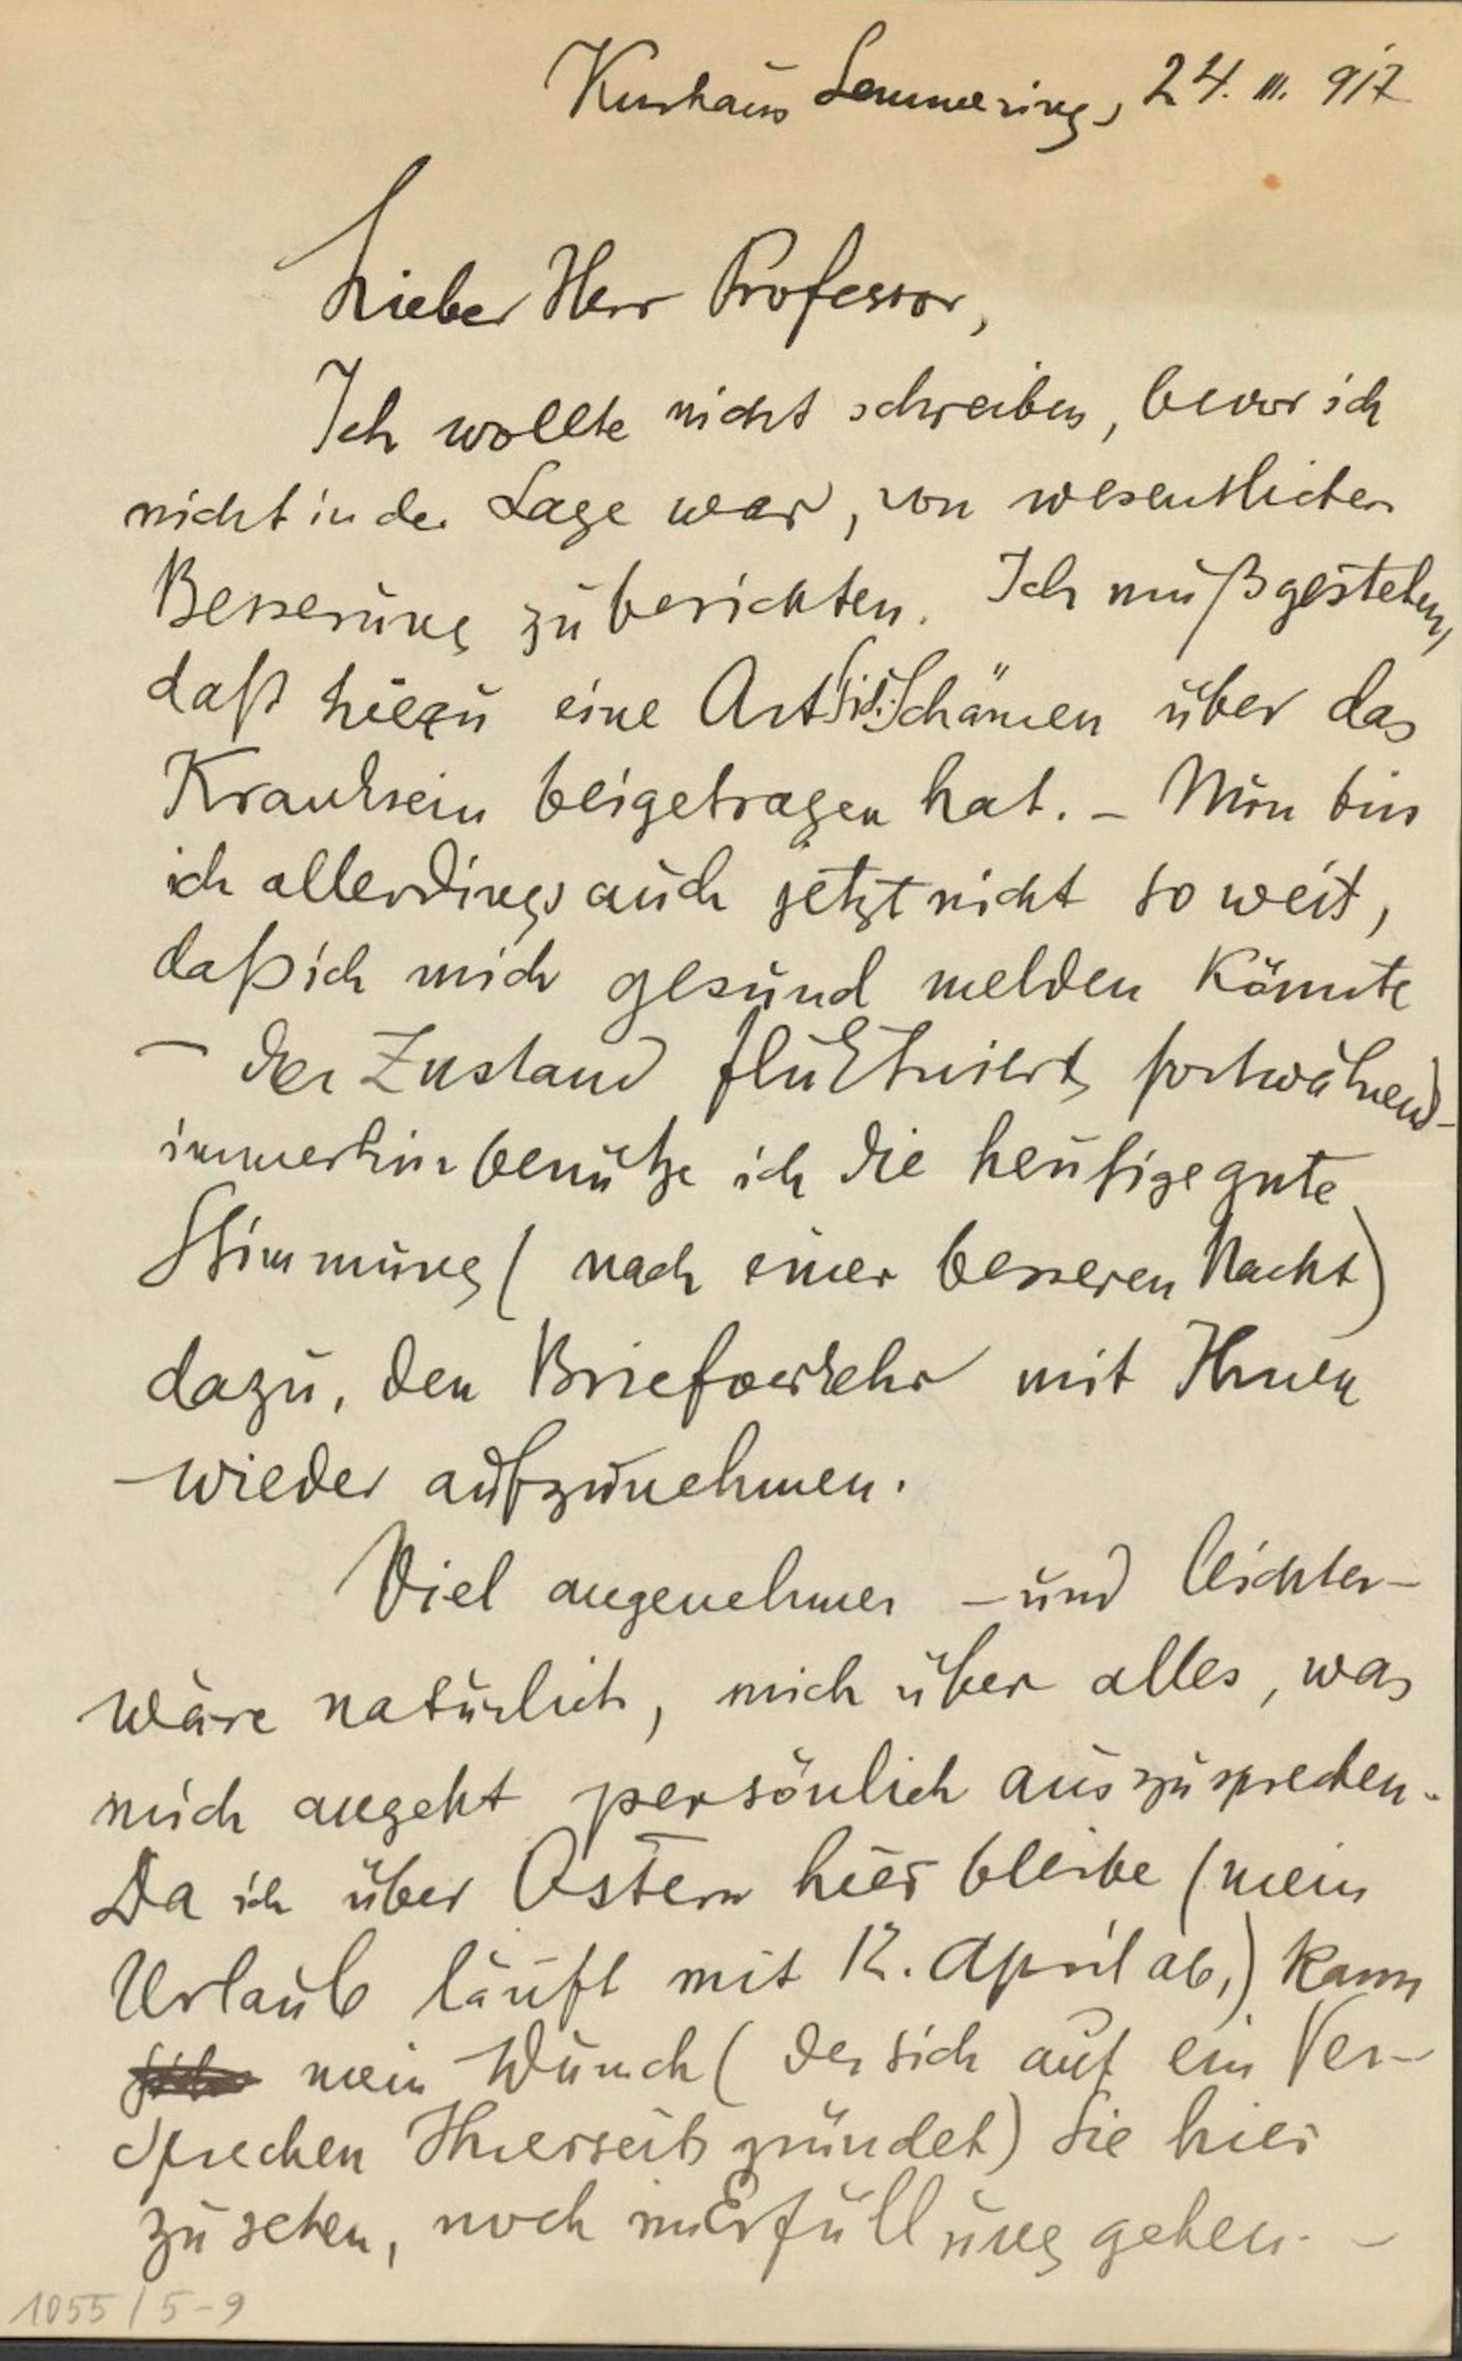 Kurhaus Semmering, 24. III. 917
Lieber Herr Professor,
Ich wollte nicht schreiben, bevor ich
nicht in der Lage war, von wesentlicher
Besserung zu berichten. Ich muß gestehen,
daß hiezu eine Art Sich-Schämen über das
Kranksein beigetragen hat. – Nun bin
ich allerdings auch jetzt nicht so weit,
daß ich mich gesund melden könnte
– der Zustand fluktuiert fortwährend –
immerhin benütze ich die heutige gute
Stimmung (nach einer besseren Nacht)
dazu, den Briefverkehr mit Ihnen
wieder aufzunehmen.
Viel angenehmer – und leichter –
wäre natürlich, mich über alles, was
mich angeht persönlich auszusprechen.
Da ich über Ostern hier bleibe (mein
Urlaub läuft mit 12. April ab,) kann
mein Wunsch (der sich auf ein Ver-
sprechen Ihrerseits gründet) Sie hier
zu sehen, noch in Erfüllung gehen. –
1055/5-9